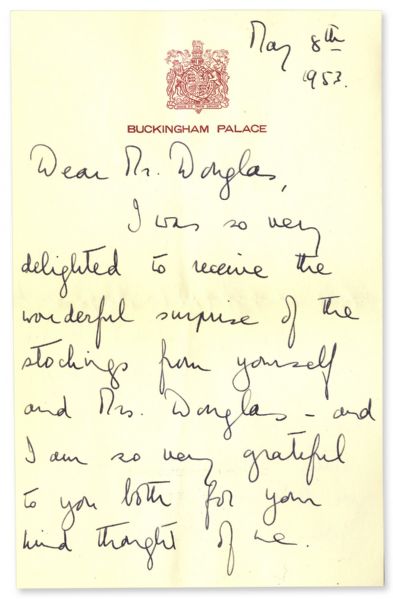 May 8th
1953.
BUCKINGHAM PALACE
Dear Mr. Douglas,
I was so very
delighted to receive the
wonderful surprise of the
stockings from yourself
and Mrs. Douglas – and
I am so very grateful
to you both for your
kind thought of me.